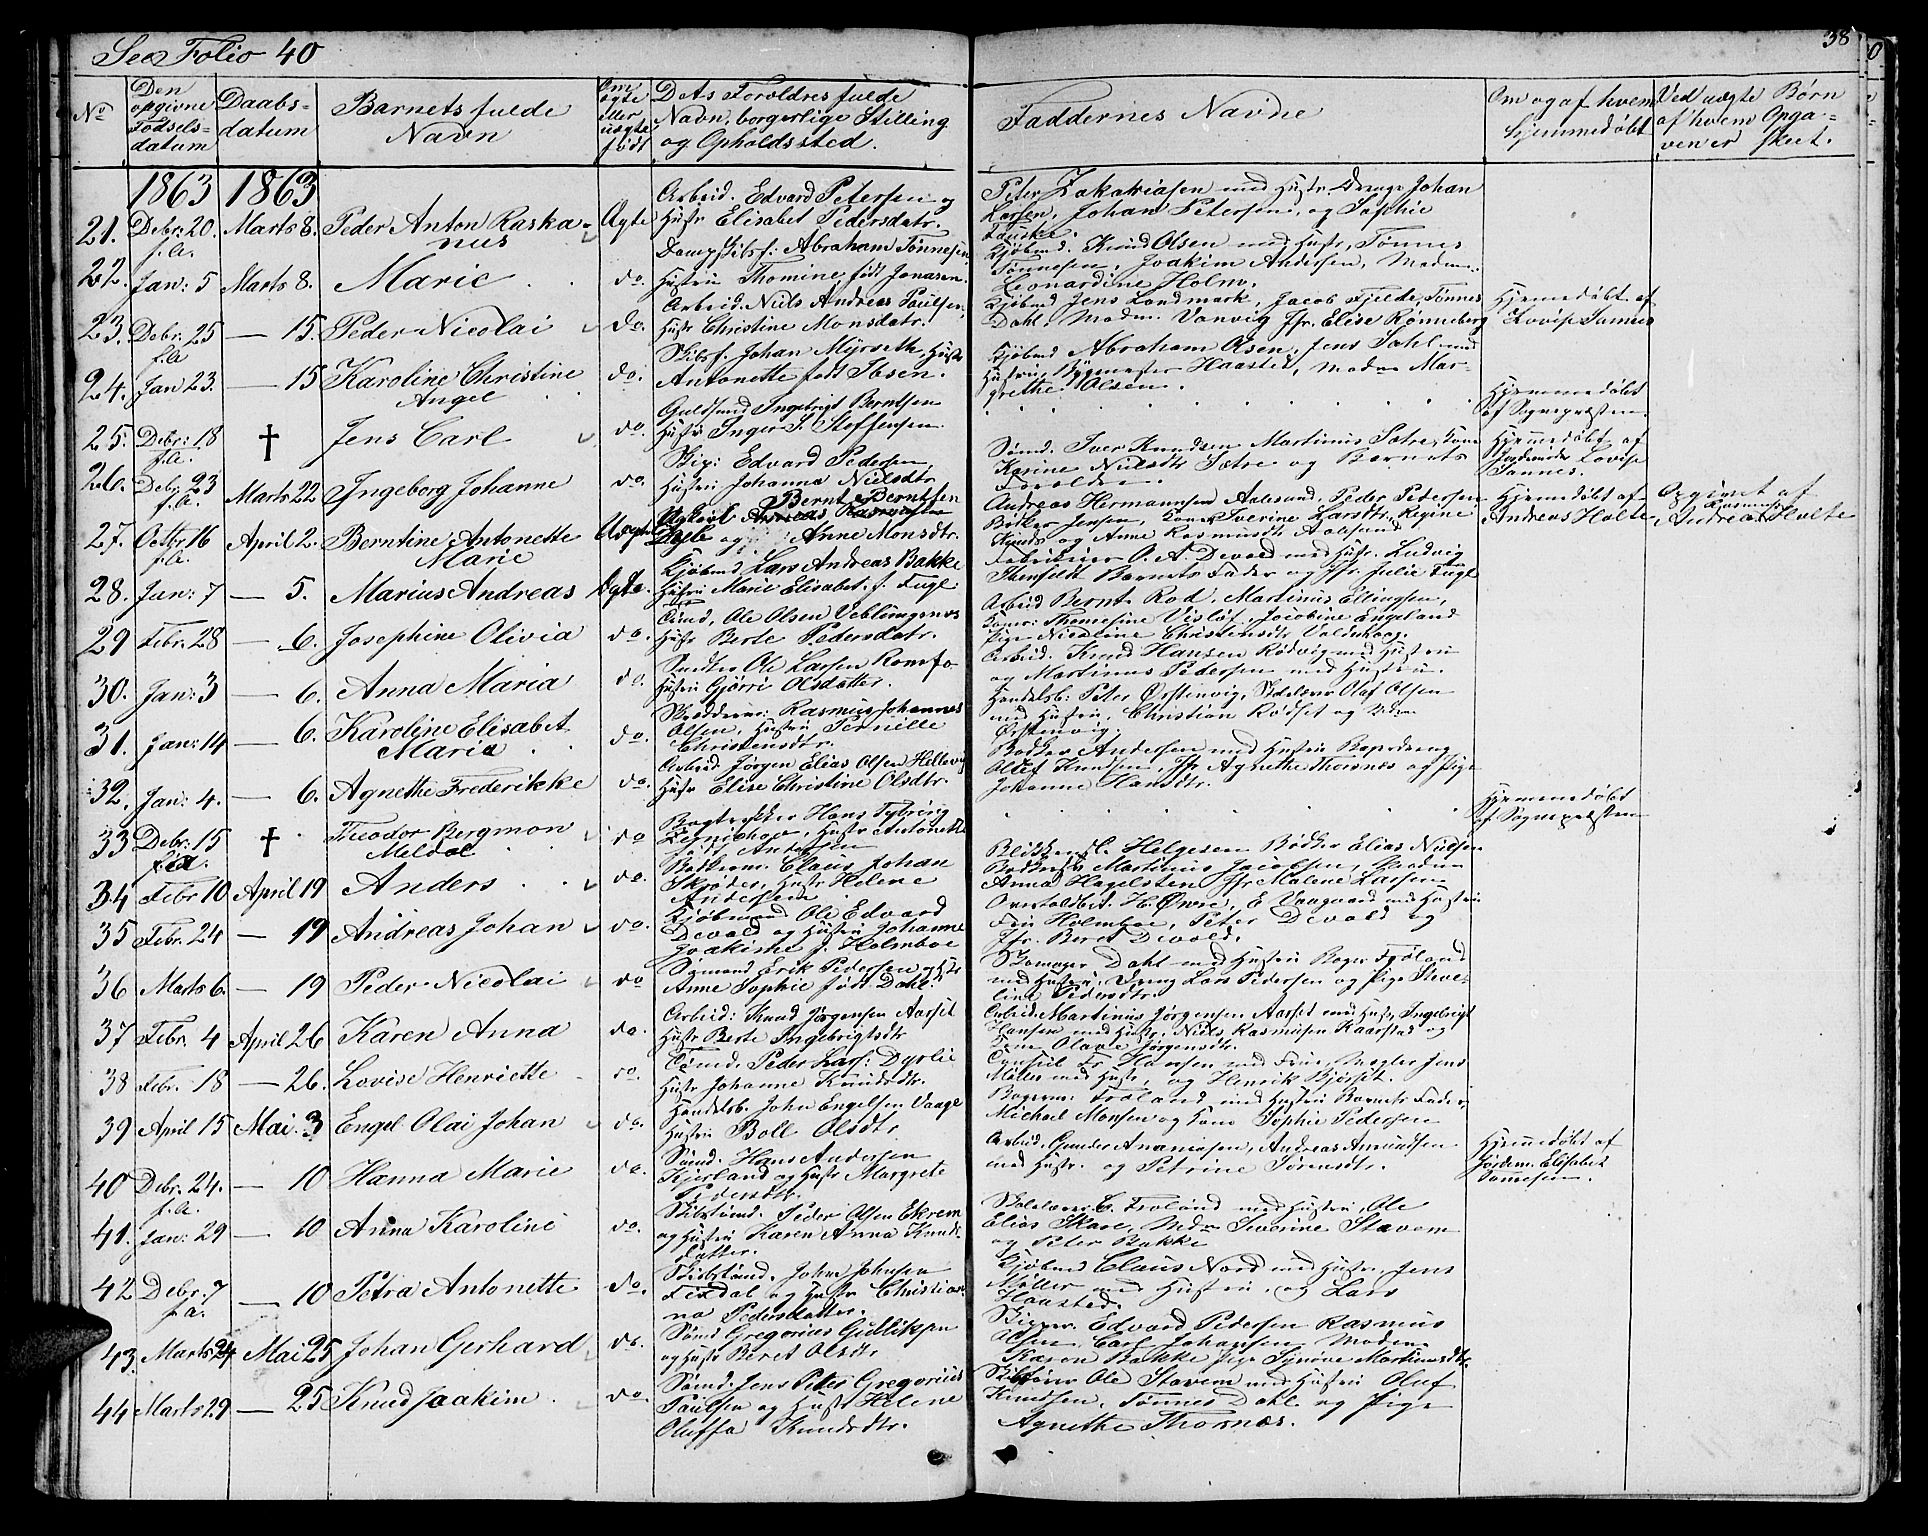 See Folio 40
38
No
Den opgivne Fødsels-datum
Daabs-datum
Barnets fulde Navn
Om ægte eller uægte født
Dets Forældres fulde Navn, borgerlige Stilling og Opholdssted.
Faddernes Navne
Om og af hvem hjemmedøbt
Ved uægte Børn af hvem Opgaven er skeet.
1863 1863
21. Debr. 20. f.A. Marts 8. Peder Anton Raskanus Ægte
Arbeid. Edvard Petersen og
Hustr Elisabet Pedersdatr.
Peter Zakariasen med Hustr Drenge Johan
Larsen, Johan Petersen, og Sophie
22. Jan: 5 Marts 8. Marie do.
Dampskibsf. Abraham Tønnesen
Hustru Thomine født Jonasen.
Kjøbmd. Knud Olsen med Hustr, Tønnes
Tønnesen, Joakim Andersen, Madm.
Leonardine Holm.
23. Debr. 25 f.A — 15. Peder Nicolai do.
Arbeid. Niels Andreas Paulsen,
Hustr Christine Monsdatr.
Kjøbmd Jens Landmark, Jacob Fjelde, Tønnes
Dahl, Madm. Vanvig Jfr. Elise Rønneberg
Hjemmedøbt af
24. Jan 23. — 15 Karoline Christine Angel do.
Skibsf. Johan Myrseth Hustr
Antonette født Ibsen.
Kjøbmd Abraham Olsen, Jens Dahl med
Hustru, Bygmester Haasted, Madm Mar-
grethe Olsen.
25. Debr: 18 f.A. † Jens Carl do.
Guldsmed Ingebrigt Berntsen
Hustr Inger S. Steffensen
Hjemmedøbt
af Sognepræsten
26. Debr. 23 f.A. Marts 22 Ingeborg Johanne do.
Skip: Edvard Pedersen
Hustru Johanna Nielsdtr
Sømd. Iver Knudsen Martinus Sætre, Kone
Karine Nielsdtr Sætre og Barnets
Forældre.
Hjemmedøbt af
27. Octbr 16 f.A. April 2. Berntine Antonette Marie Uægte
Bernt Berntsen
og Anne Monsdtr.
Andreas Hermannsen Aalesund, Peder Pedersen
Bødker Jensen, Kone Iverine Larsdtr, Regine
og Anne Rasmusdtr Aalesund
Hjemmedøbt af
Andreas Holte
Opgivet af
Andreas Holte
28. Jan: 7 — 5. Marius Andreas Ægte.
Kjøbmd Lars Andreas Bakke
Hustru Marie Elisabet f. Fugl
O. A. Devold med Hustr. Ludvig
Barnets Fader og Jfr. Julie Fugl
29 Febr. 28 — 6. Josephine Olivia do.
Ole Olsen Veblungsnes
Hustr Berte Pedersdatr.
Arbeid Bernt Rod, Martinus Ellingsen,
Thomesine Visløf, Jacobine Engeland
Pige Nicoline Christensdtr Valderhaug.
30. Jan: 3 — 6. Anna Maria do.
Ole Larsen Romfo
Hustru Gjørri Olsdatter.
Arbeid. Knud Hansen Rødvig med Hustru
og Martinus Pedersen med Hustru.
31. Jan: 14 — 6. Karoline Elisabet Maria do.
Skrædderm: Rasmus Johannes
Olsen, Hustru Pernille
Christensdtr.
Handelsb: Peter Ørstenvig, Skolelærer Olaf Olsen
med Hustru, Christian Rødset og Madm
Ørstenvig.
32. Jan: 4. — 6. Agnethe Frederikke do.
Arbeid. Jørgen Elias Olsen Hellevig
Hustr Elise Christine Olsdtr.
Bødker Andersen med Hustru Bagerdreng
Oluf Knudsen, Jfr Agnethe Thorsnes og Pige
Johanne Hansdtr.
33 Debr: 15 f.A. † Theodor Bergmon Meldal do
Bogtrykker Hans Tyboring
Hustr Antonette
født Andersen
Hjemmedøbt
af Sognepræsten
34 Febr 10 April 19 Anders do.
Bødkerm. Claus Johan
Skjødes, Hustr Helene
Andersen.
Helgesen Bødker Elias Nielsen
Martinus Jacobsen, Madm
Anna Hagelsten Jfr Malene Larsen
35 Febr. 24 — 19 Andreas Johan do.
Kjøbmand Ole Edvard
Devold og Hustru Johanne
Joakime f. Holmboe
Overtoldbet. H. Øwre, E Vaagaard med Hustru
Fru Holmboe, Peter Devold og
Jfr. Beret Devold.
36 Marts 6. — 19 Peder Nicolai do
Sømand Erik Pedersen og Hustr
Anne Sophie født Dahl.
Skomager Dahl med Hustru Bager Frøland
med Hustru, Dreng Lars Pedersen og Pige Steve-
line Pedersdtr.
37 Febr. 4 April 26 Karen Anna do.
Arbeid: Knud Jørgensen Aarset
Hustr Berte Ingebrigtsdtr
Arbeid. Martinus Jørgensen Aarset med Hustr, Ingebrigt
Hansen med Hustr, Niels Rasmusen Kaarstad og
Olave Jørgensdtr.
38 Febr. 18 — 26. Lovise Henriette do.
Tømd. Peder Lars: Dyrlie
Hustr Johanne Knudsdtr.
Consul Fr Hansen med Frue, Mægler Jens
Møller med Hustr, og Henrik Bjørset.
39 April 15 Mai. 3 Engel Olai Johan do.
Handelsb. John Engelsen Vaage
Hustru Boll Olsdtr
Bagerm: Frøland med Hustru Barnets Fader,
Michael Monsen og Kone Sophie Pedersen
40 Debr. 24. f.A. — 10 Hanna Marie do.
Sømd. Hans Andersen
Kjerland og Hustr Margrete
Pedersdtr.
Arbeid. Gunder Anmunsen, Andreas Amundsen
med Hustr. og Petrine Sørensdtr.
Hjemmedøbt af
Jordem. Elisabet
Tønnesen.
41. Jan: 29 — 10 Anna Karoline do.
Skibstømd. Peder Olsen Ekrem
og Hustru Karen Anna Knuds-
datter.
Skolelærer C. Frøland med Hustru, Ole
Elias Skare, Madm Severine Stavem
og Peter Bakke
42 Debr. 7 f.A. — 10 Petra Antonette do.
Skibstømd. John Johnsen
og Hustr Christian-
na Pedersdatter.
Kjøbmd Claus Nord med Hustr, Jens
Møller med Hustru, og Lars
Haasted.
43. Marts 24 Mai 25 Johan Gerhard do.
Sømd Gregorius Gudliksen
og Hustr Beret Olsdtr
Skipper. Edvard Pedersen Rasmus
Olsen, Carl Johansen, Madm
Karen Bakke Pige Synøve Martinusdtr.
44 Marts 29 — 25 Knud Joakim do.
Sømd. Jens Peter Gregorius
Paulsen og Hustr Helene
Oluffa Knudsdtr.
Ole Stavem med Hustru Oluf
Knudsen, Tønnes Dahl og Pige
Agnethe Thorsnes.